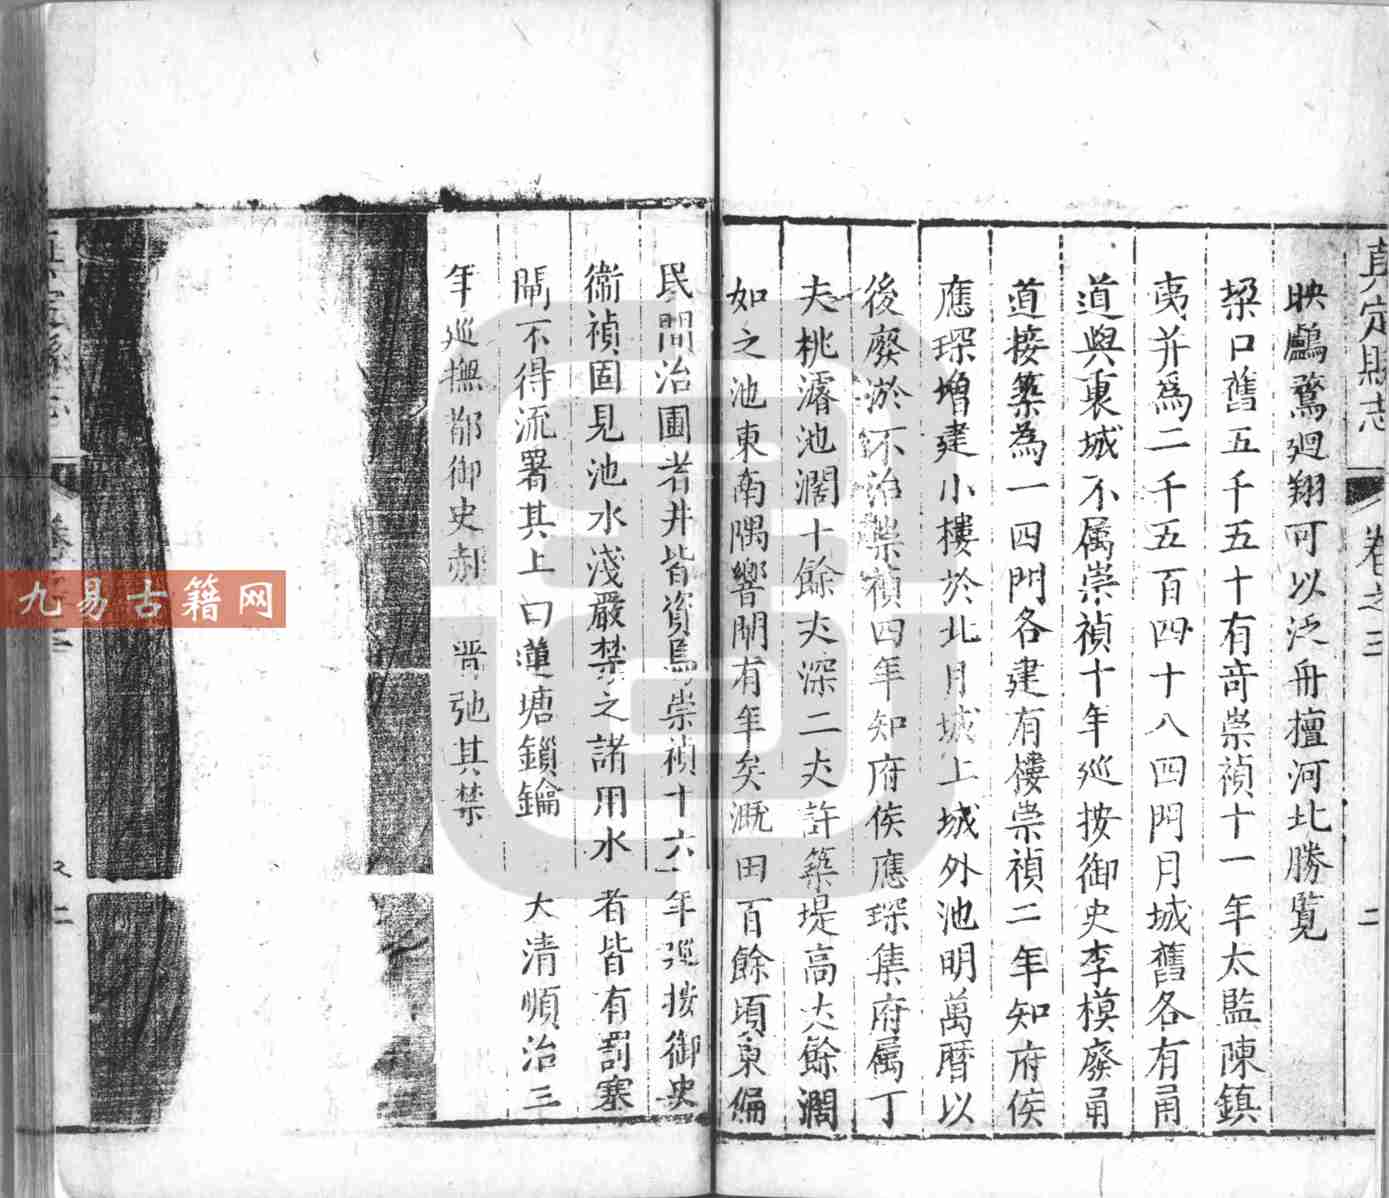 真定縣志 卷之三 二
映鷫鶩廻翔可以泛舟檀河北勝覧
梁口舊五千五十有竒崇禎十一年太監陳鎮
夷并為二千五百四十八四門月城舊各有甬
道與裏城不属崇禎十年巡按御史李模廢甬
道接築為一四門各建有樓崇禎二年知府侯
應琛增建小樓於北月城上城外池明萬曆以
後廢淤不治崇禎四年知府侯應琛集府属丁
夫桃濬池濶十餘丈深二丈許築堤高丈餘濶
如之池東南隅響閘有年矣溉田百餘頃東偏
民間治圃者井皆資焉崇禎十六年巡按御史
衛禎固見池水淺嚴禁之諸用水者皆有罰塞
閘不得流署其上曰蓮塘鎖鑰 大清順治三
年巡撫都御史郝 晋弛其禁
九易古籍网